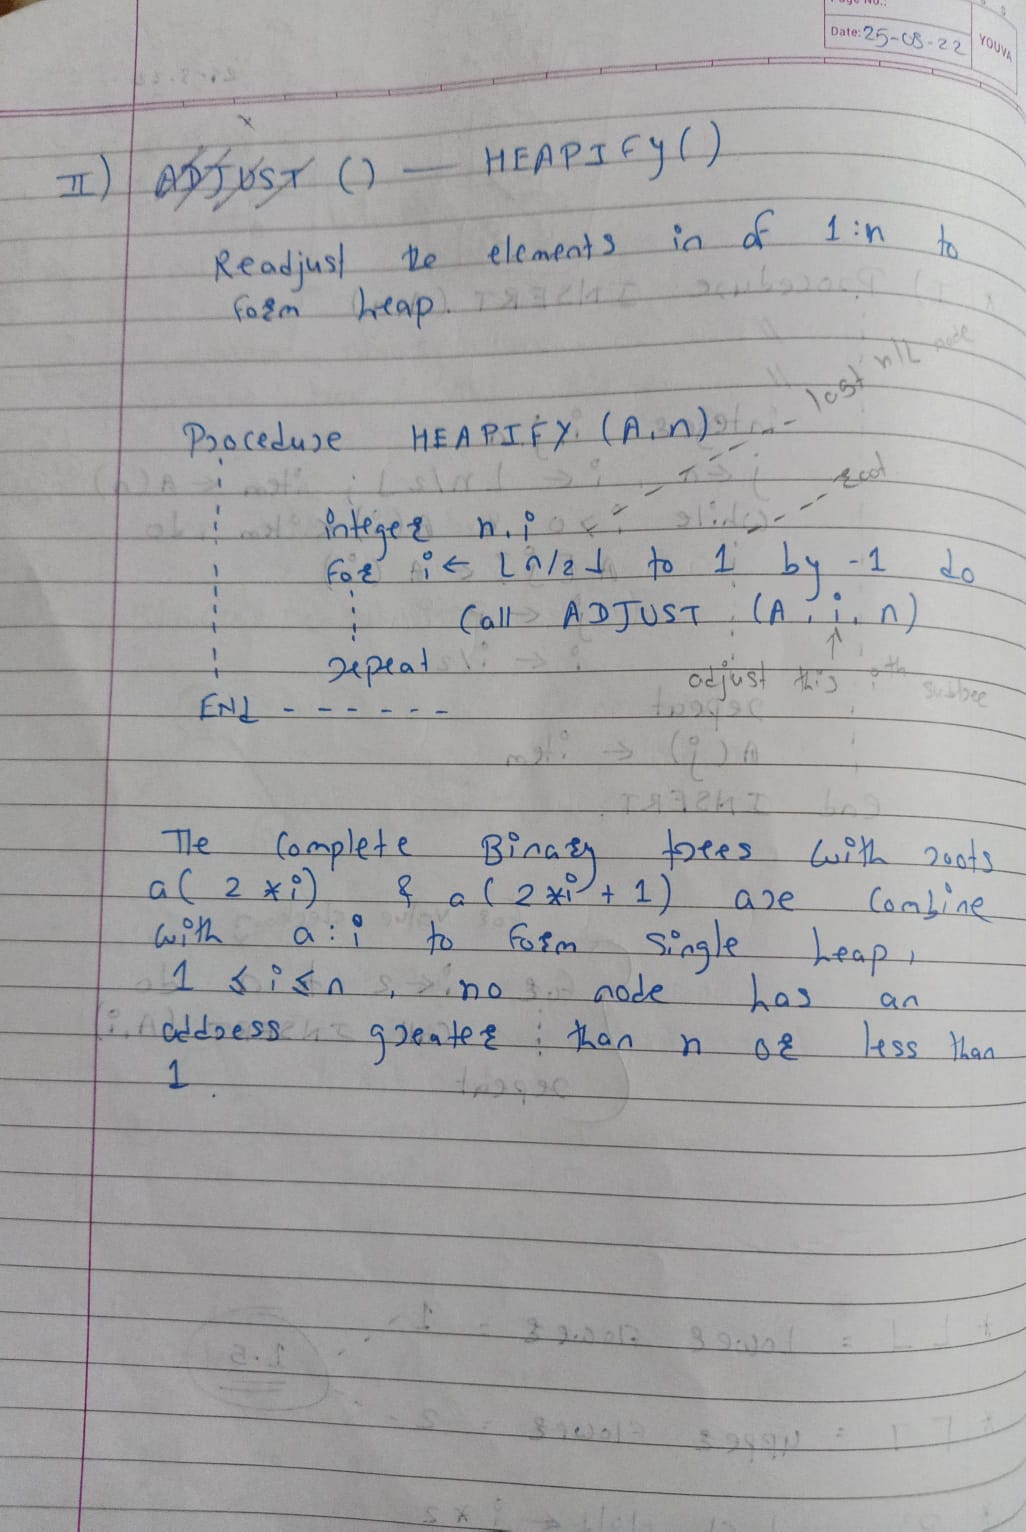 Page No.:
Date: 25-08-22
YOUVA
x
II) ADJUST () — HEAPIFY()
Readjust the elements in of 1:n to
form heap.
last n/2 node
Procedure HEAPIFY (A,n)
root
integer n,i
for i ← ⌊n/2⌋ to 1 by -1 do
Call ADJUST (A, i, n)
repeat
adjust this ith subtree
END - - - - - -
The Complete Binary trees with roots
a( 2 *i) & a( 2*i + 1) are Combine
with a:i to form single heap,
1 ≤ i ≤ n, no node has an
address greater than n or less than
1.